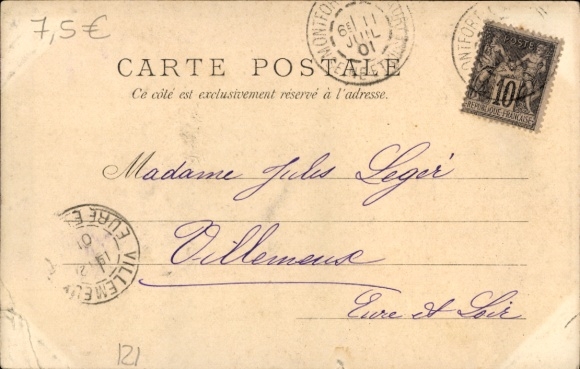 7,5€
MONTFORT
6E 11
JUIL
01
POSTES
10
REPUBLIQUE FRANÇAISE
CARTE POSTALE
Ce côté est exclusivement réservé à l'adresse.
Madame Jules Leger
Villemeux
Eure et Loir
VILLEMEUX
EURE E
01
121